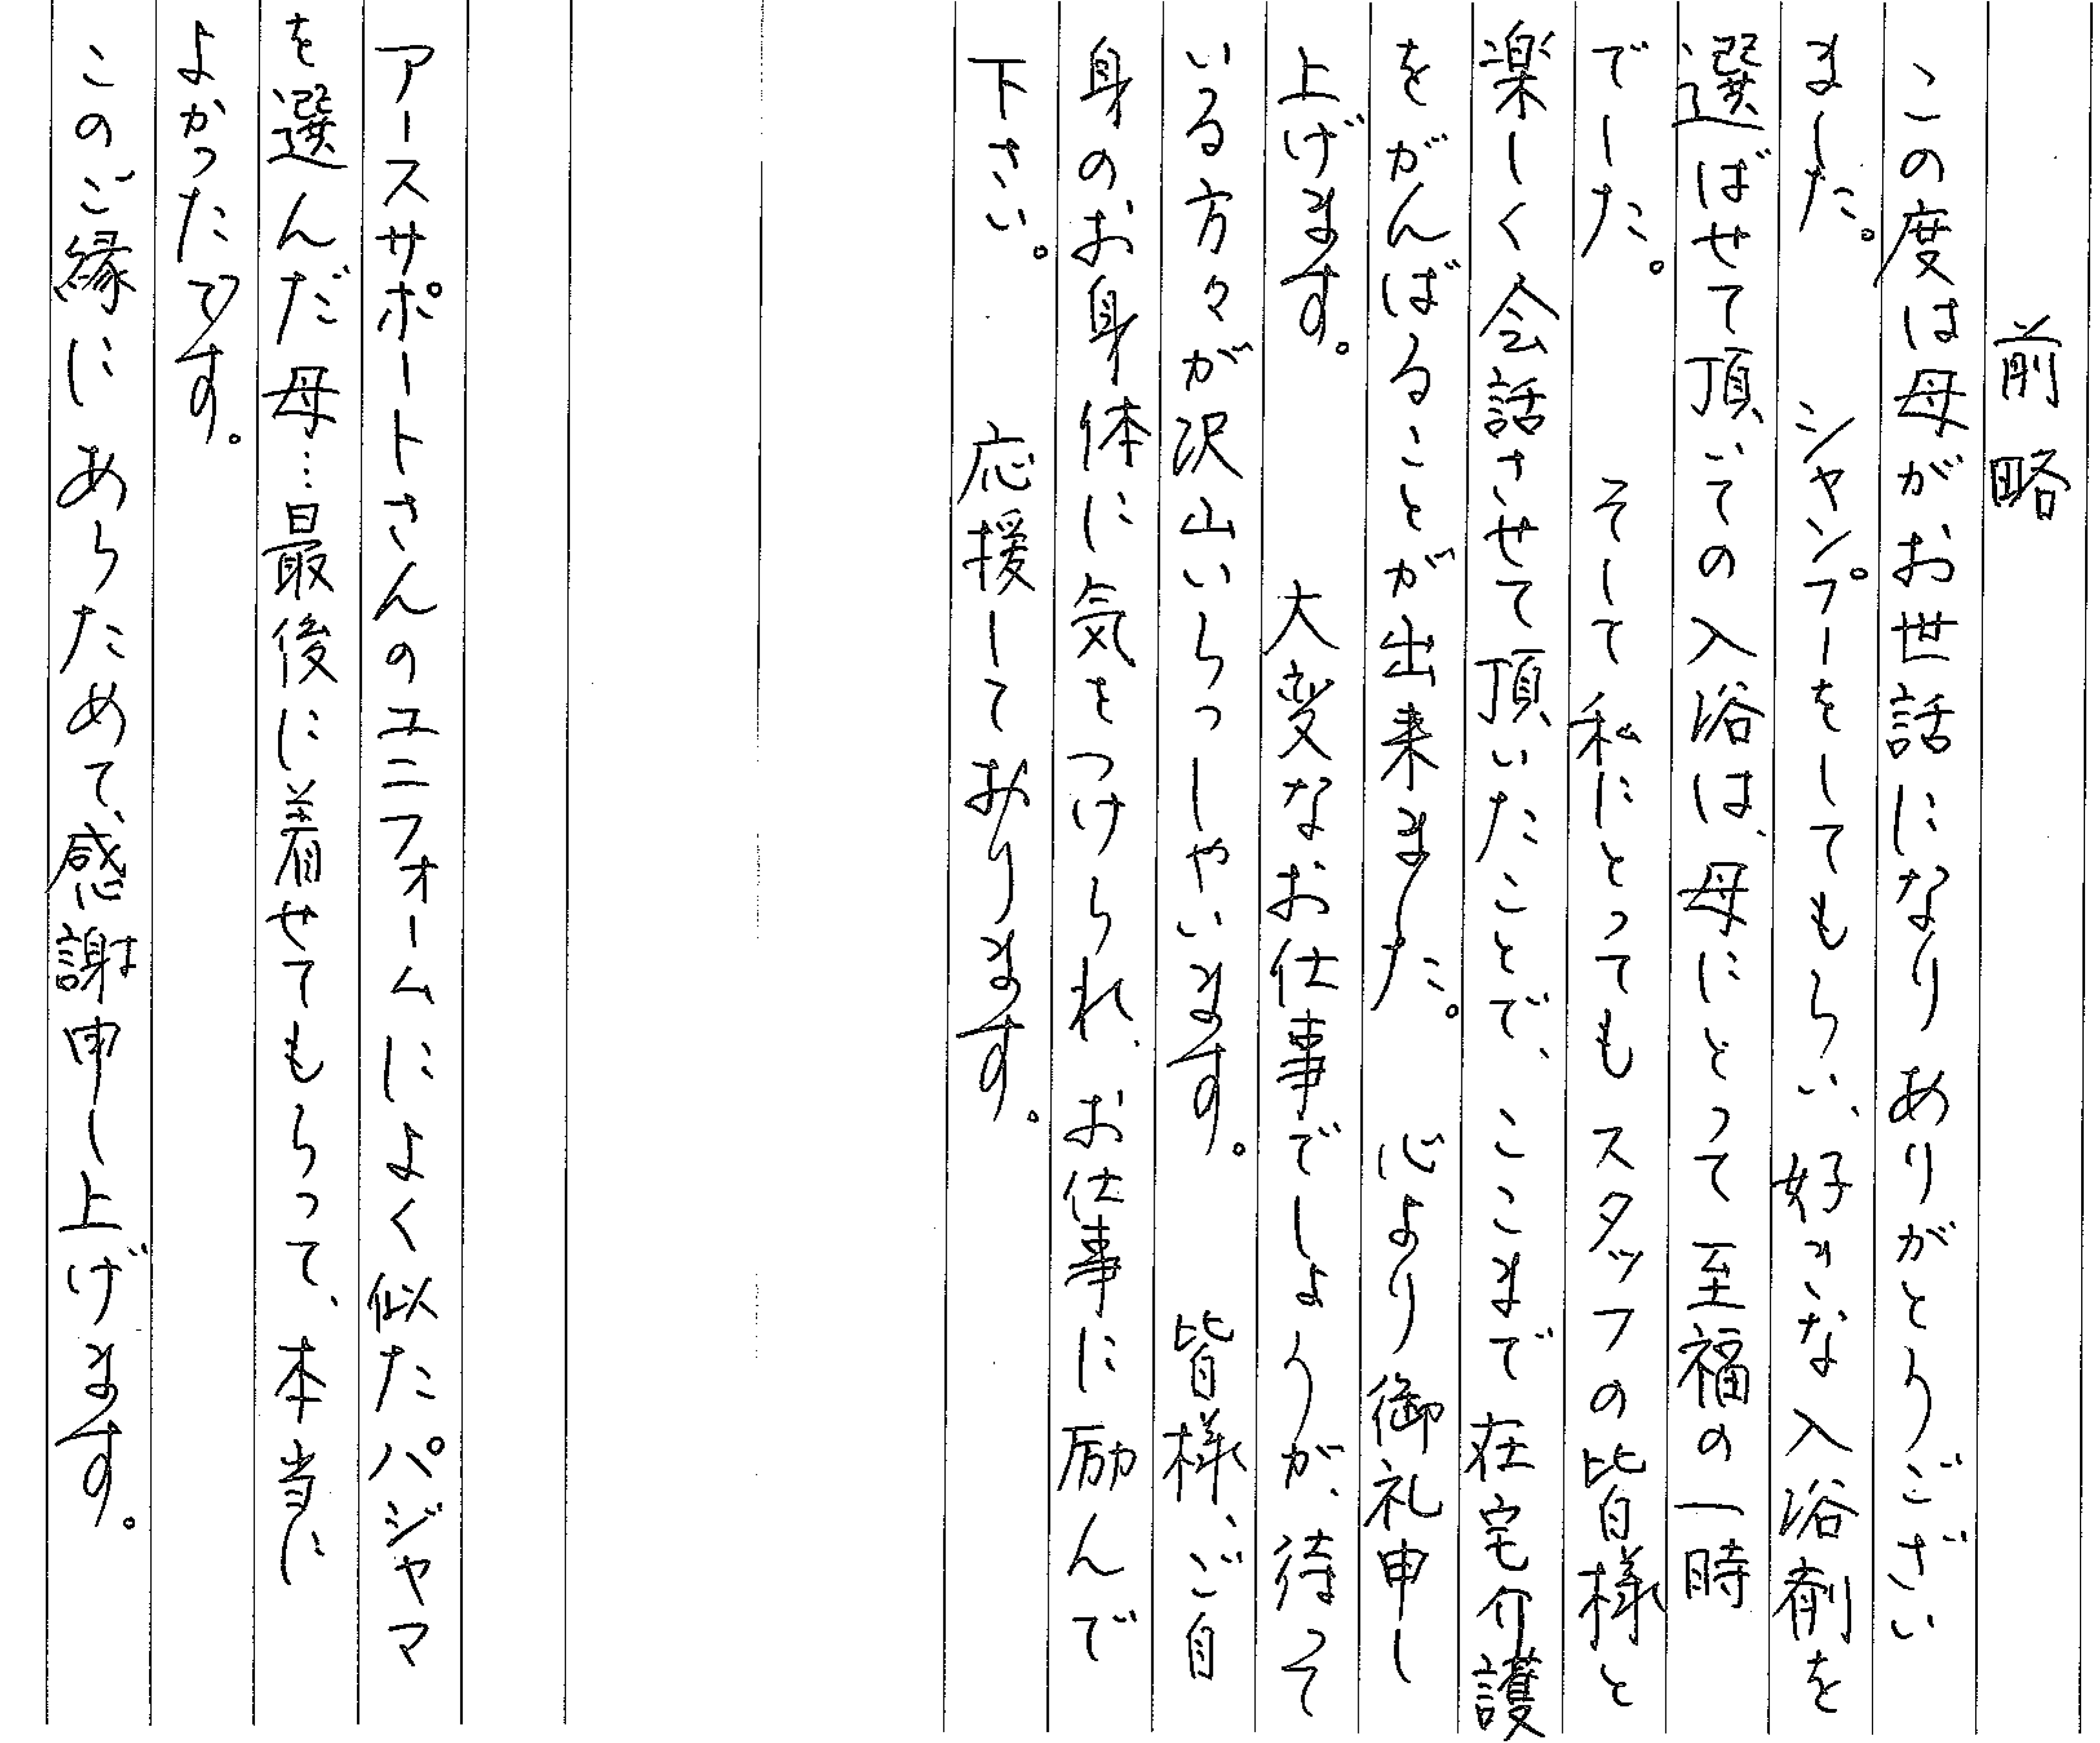 前略
この度は母がお世話になりありがとうござい
ました。シャンプーをしてもらい、好きな入浴剤を
選ばせて頂いての入浴は、母にとって至福の一時
でした。そして私にとってもスタッフの皆様と
楽しく会話させて頂いたことで、ここまで在宅介護
をがんばることが出来ました。心より御礼申し
上げます。大変なお仕事でしょうが、待って
いる方々が沢山いらっしゃいます。皆様、ご自
身のお身体に気をつけられ、お仕事に励んで
下さい。応援しております。
アースサポートさんのユニフォームによく似たパジャマ
を選んだ母…最後に着せてもらって、本当に
よかったです。
このご縁にあらためて、感謝申し上げます。